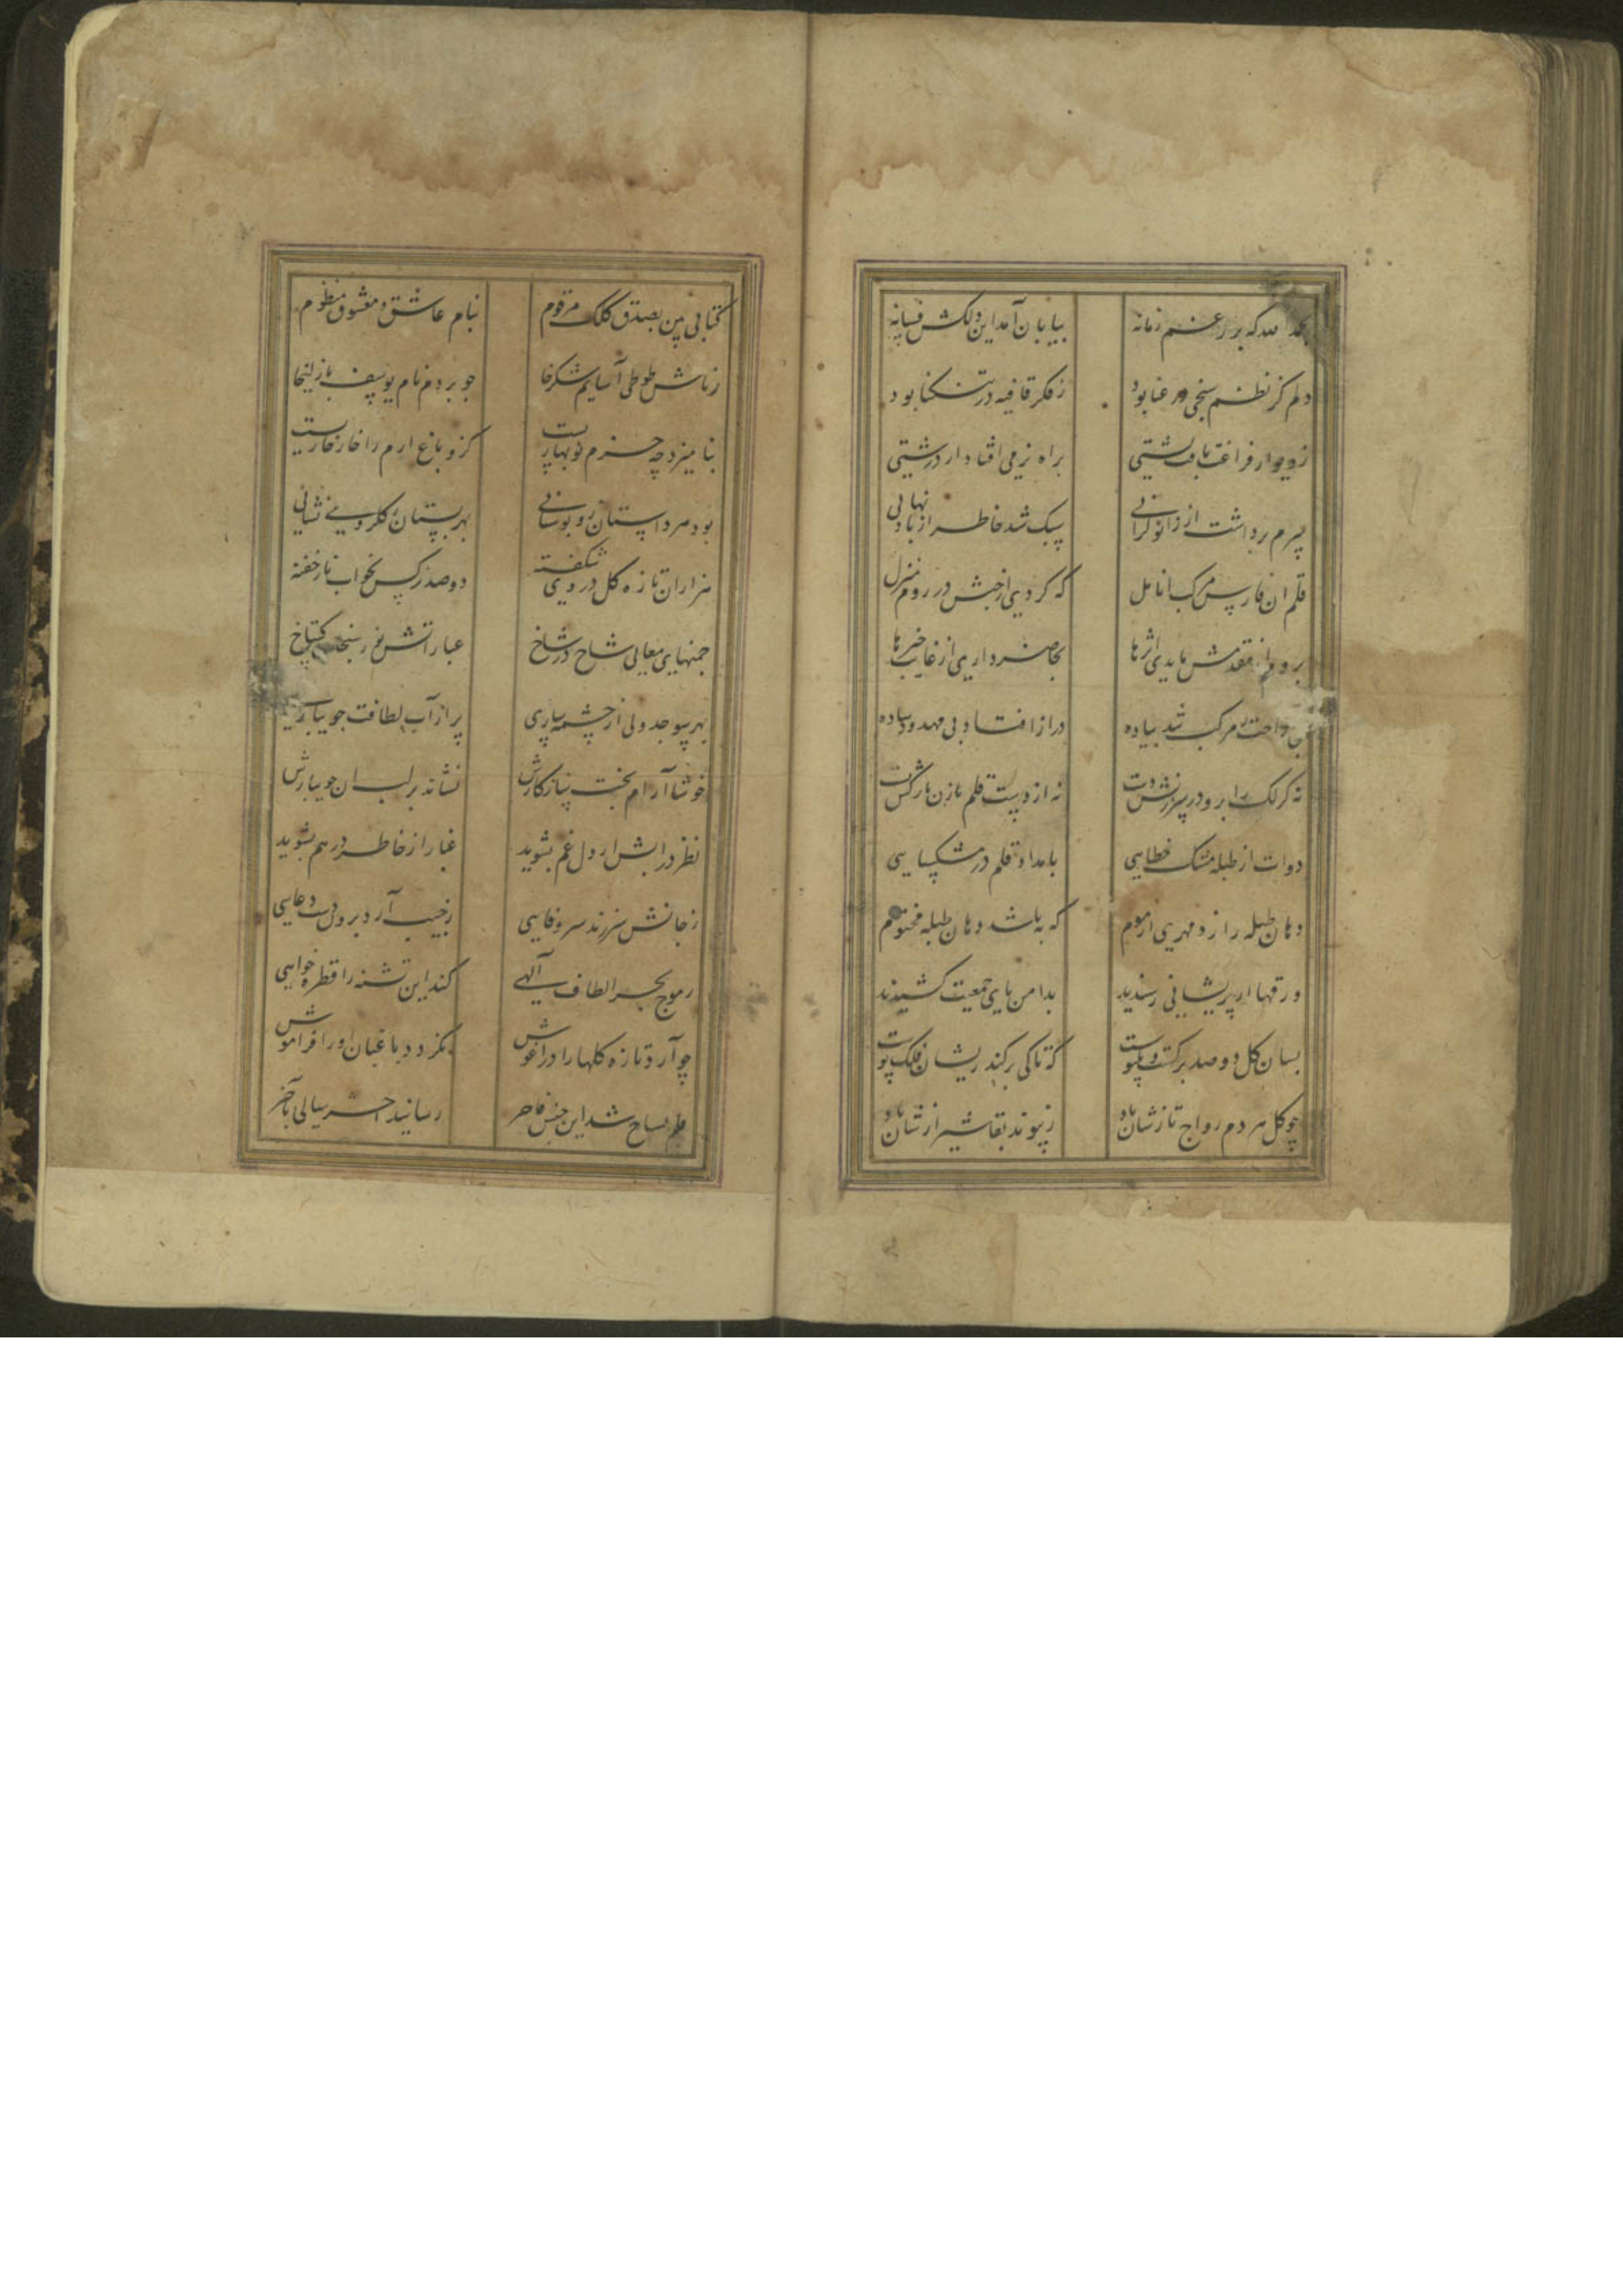 بحمد الله که بر رغم زمانه بپایان آمد این دلکش فسانه
دلم کز نظم سنجی در عنا بود ز فکر قافیه در تنکنا بود
ز دیوار فراغت یافت پشتی براه نرمی افتاد از درشتی
سرم برداشت از زانو کرانی سبک شد خاطر از بار نهانی
قلم ان فارس مرکب انامل که کردی از حبش در روم منزل
برو از مقدمش باید اثرها بحاضر دارمی از غایب خبرها
احت ز مرکب شد پیاده دراز افتاد بی مهد وساده
نه کزلک را برو در سرزنش دست نه از دست قلم زن بارکش کشت
دوات از طبله مشک خطایی بامداد قلم در مشکسایی
دهان طبله را زد مهری از موم که به باشد دهان طبله مختوم
ورقها از پریشانی رسیدند بدامن پای جمعیت کشیدند
بسان کل دو صد برکست و یکپوست که تاکی برکند زیشان فلک پوست
چو کل هر دم رواج تازشان باد ز پیوند بقا شیرازشان باد
کتابی بین بصدق کلک مرقوم بنام عاشق و معشوق منظوم
ز نامش طوطی آسایم شکرخا چو بردم نام یوسف با زلیخا
بنامیزد چه خرم نوبهاریست کزو باغ ارم را خار خاریست
بود هر داستان زو بوستانی بهر بستان ز کلرویی نشانی
هزاران تازه کل در وی شکفته دو صد نرکس بخواب ناز خفته
چمنهای معانی شاخ در شاخ عباراتش نو کستاخ
بهر سو جدولی از چشمه ساری پر از آب لطافت جویباری
خوشا آرام بخت سازکارش نشاند بر لب ان جویبارش
نظر در ابش از دل غم بشوید غبار از خاطر درهم بشوید
ز جانش سر زند سر وفایی ز جیب آرد برون دست دعایی
ز موج بحر الطاف آلهی کند این تشنه را قطره خواهی
چو آرد تازه کلها را در اغوش نکردد باغبان او را فراموش
قلم نساج شد این جنس فاخر رسانید اخر سالی بآخر